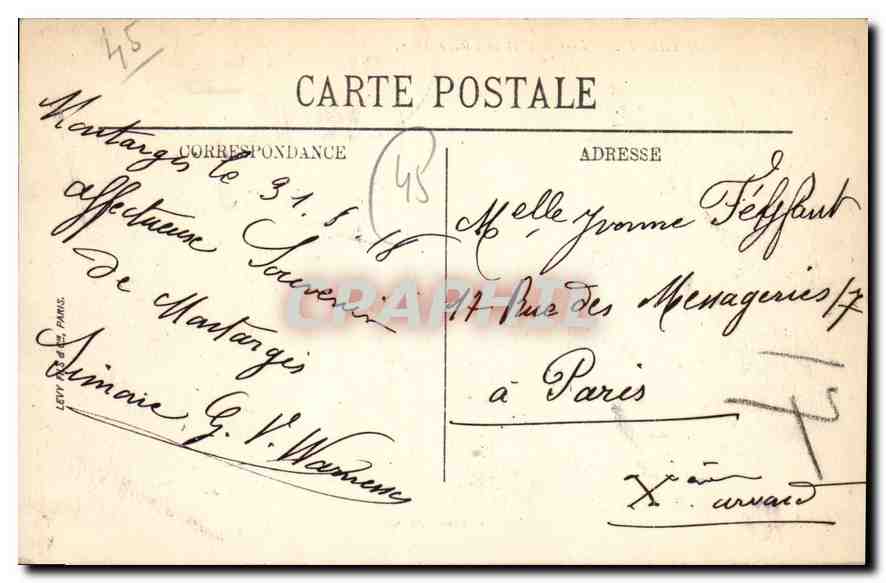 45
CARTE POSTALE
CORRESPONDANCE
ADRESSE
45
Montargis le 31. 5 18
affectueuse Souvenir
de Montargis
Simone G. V.
Melle Yvonne
17 Rue des Messageries 17
à Paris
Xe
LEVY FILS & Cie, PARIS.
CPAPHIL